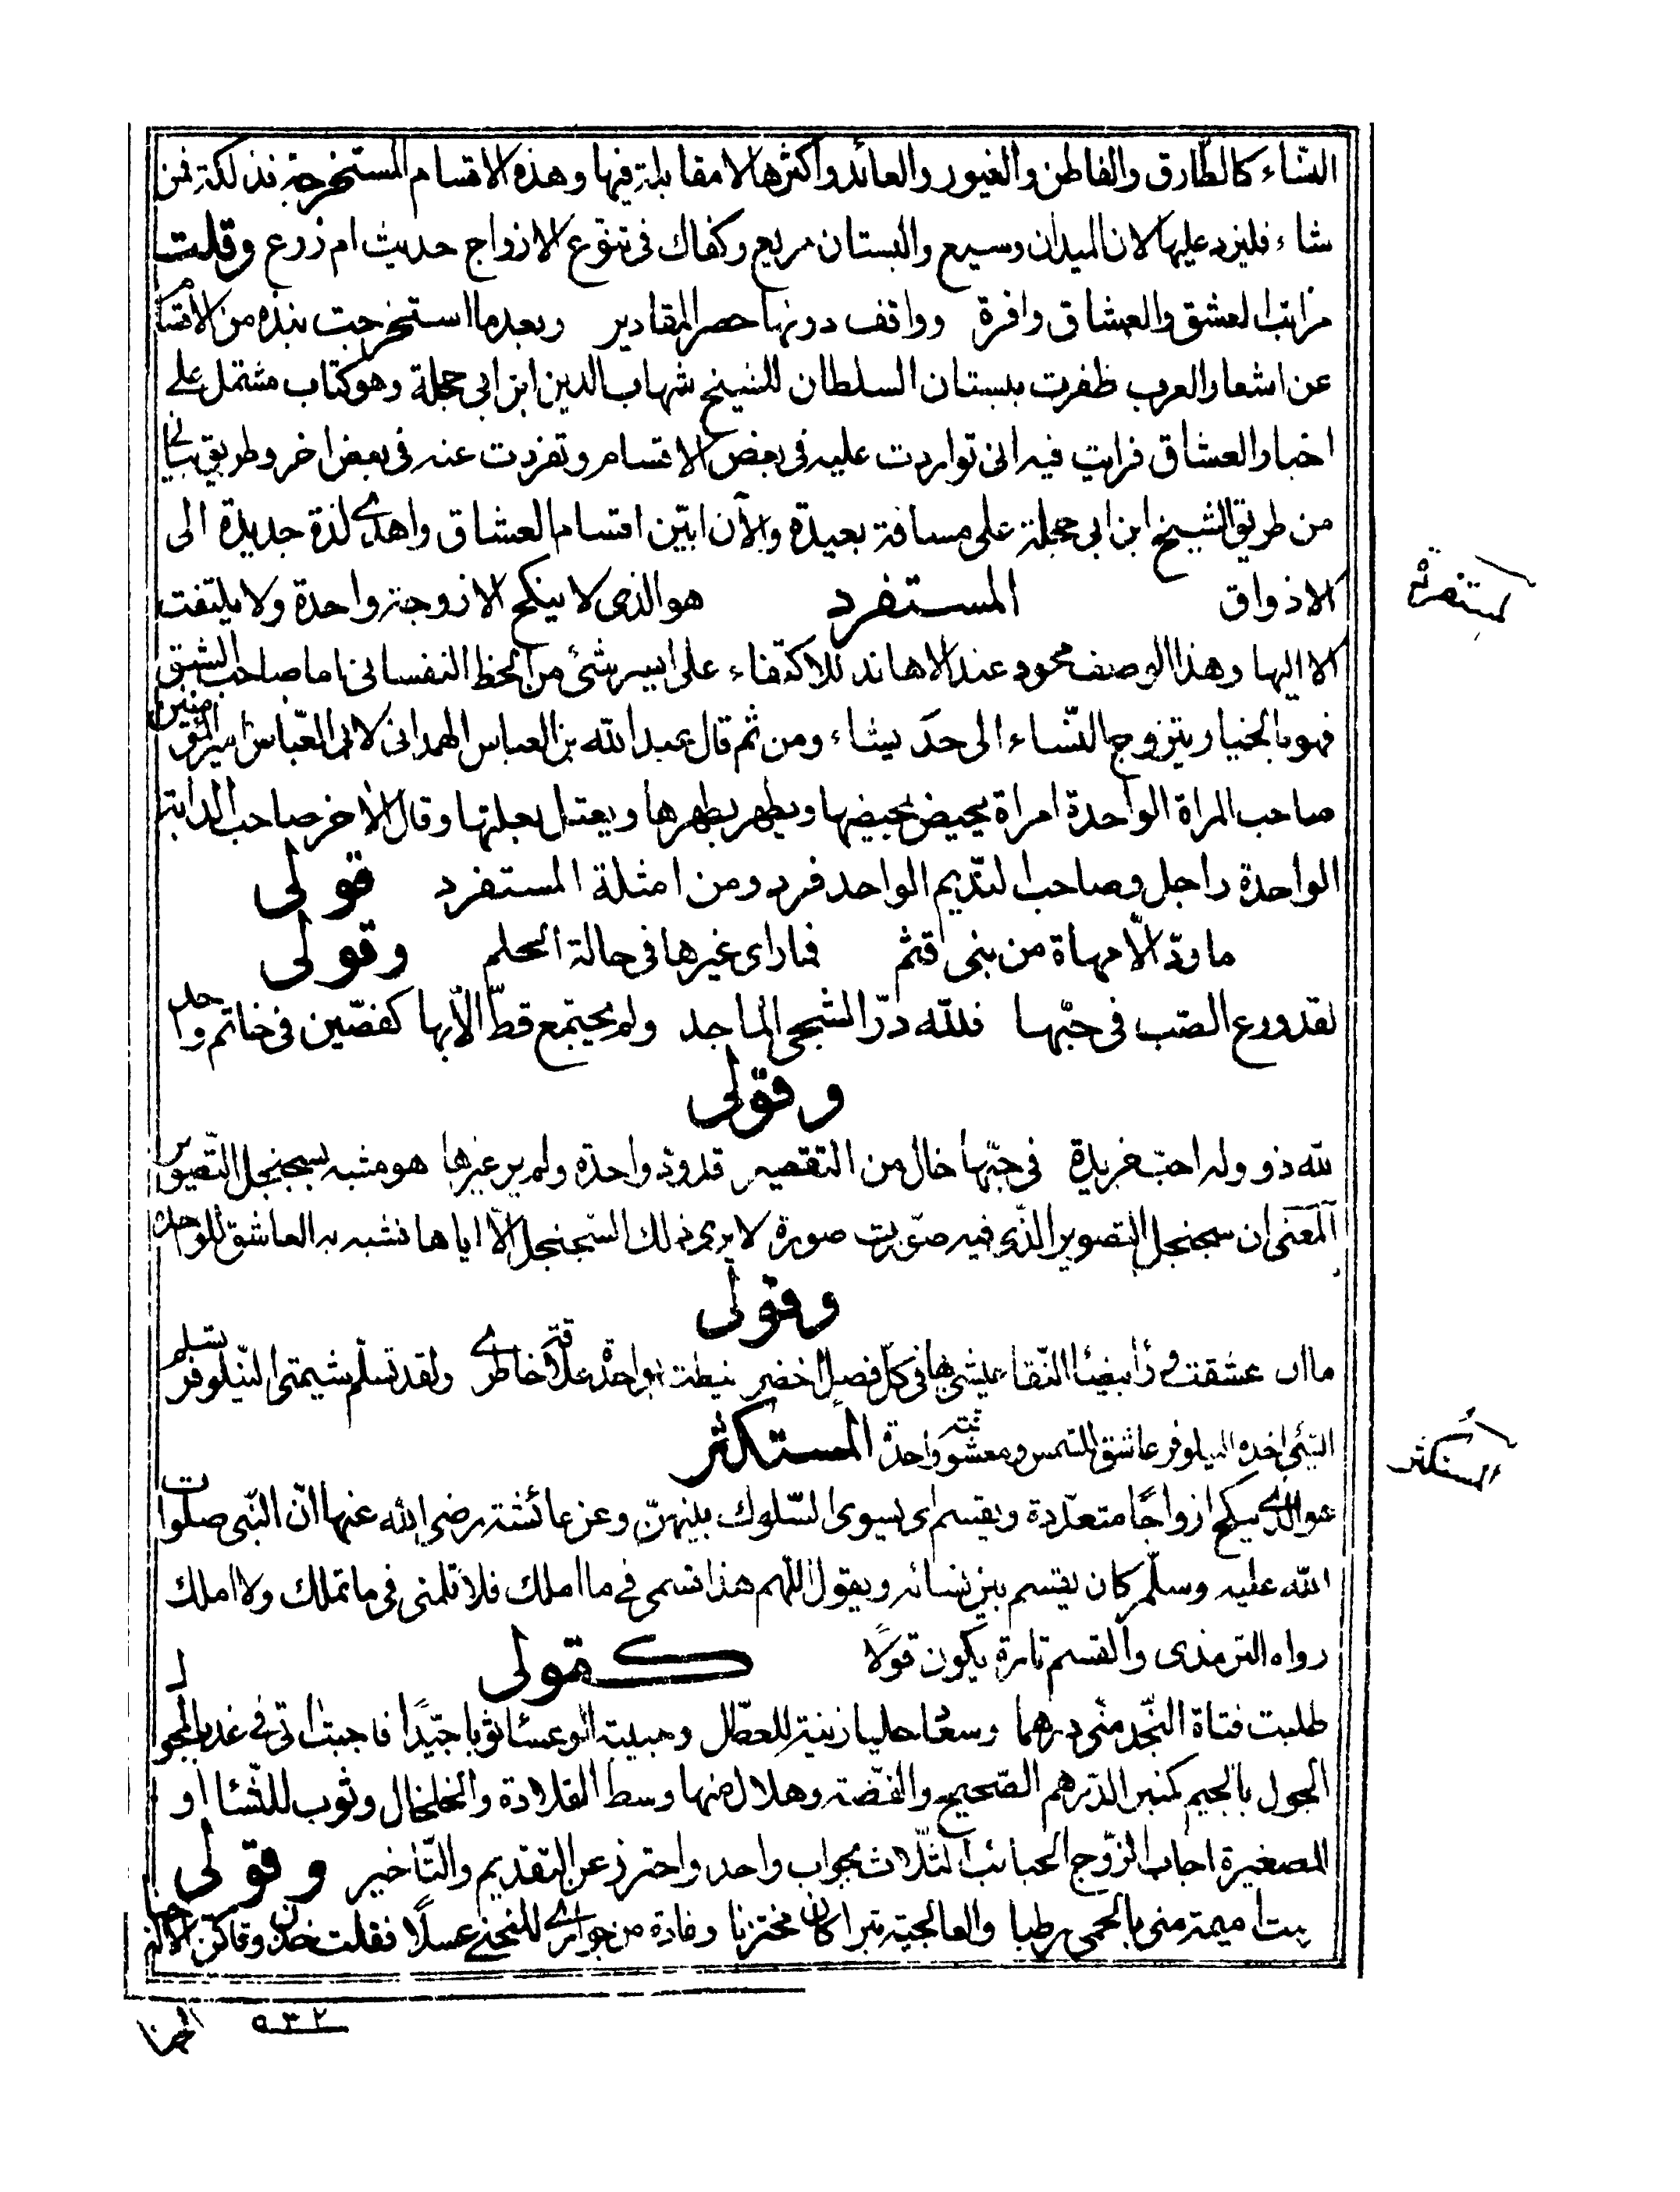 النساء كالطارق والفاطن والغيور والعائد واكثرها لا مقابلة فيها وهذه الاقسام المستخرجة فذلكة فمن
شاء فليزد عليها لان الميدان وسيع والبستان مريع وكفاك فى تنوع الازواج حديث ام زرع وقلت
مراتب العشق والعشاق وافرة وواقف دونها حصر المقادير وبعدما استخرجت نبذه من الاقسام
عن اشعار العرب ظفرت ببستان السلطان للشيخ شهاب الدين ابن ابى حجلة وهو كتاب مشتمل على
اخبار العشاق فرايت فيه انى تواردت عليه فى بعض الاقسام وتفردت عنه فى بعض اخر وطريق بيانى
من طريق الشيخ ابن ابى حجلة على مسافة بعيدة والآن ابيّن اقسام العشاق واهدى لذة جديدة الى
الاذواق المستفرد هو الذى لا ينكح الا زوجة واحدة ولا يلتفت
الا اليها وهذا الوصف محمود عند الاهاند للاكتفاء على ايسر شئ من الحظ النفسانى اما صاحب الشبق
فهو بالخيار يتزوج النّساء الى حدّ يشاء ومن ثم قال عبد الله بن العباس الهمدانى لابى العبّاس امير المؤمنين
صاحب المراة الواحدة امراة يحيض بحيضها ويطهر بطهرها ويعتل بعلتها وقال الآخر صاحب الدابة
الواحدة راجل وصاحب النّديم الواحد فرد ومن امثلة المستفرد قولى
ما ودّ الّا مهاة من بنى قثم فما راى غيرها فى حالة الحلم وقولى
لقد ورع الصّب فى حبّها فللّه درّ الشجى الماجد ولم يجتمع قطّ الّا بها كفصّين فى خاتم واحد
وقولى
لله ذو وله احبّ خريدة فى حبّها خال من التقصير قد ودّ واحدة ولم ير غيرها هو مشبه بسجنجل التّصوير
المعنى ان سجنجل التصوير الذّى فيه صوّرت صورة لا يرى ذلك السّجنجل الّا اياها فشبه به العاشق للواحدة
وقولى
ما ان عشقت النّقا فى كل فصل اخضر نيطت بواحدة علاقة خاطرى ولقد تسلّم شيمتى النّيلوفر
النيلوفر عاشق الشمس ومعشوقته واحدة المستكثر
هو الذى ينكح ازواجًا متعدّدة ويقسم اى يسوى السّلوك بينهنّ وعن عائشة رضى الله عنها انّ النّبى صلوات
الله عليه وسلّم كان يقسم بين نسائه ويقول اللّهم هذا قسمى فى ما املك فلا تلمنى فى ما تملك ولا املك
رواه الترمذى والقسم تارة يكون قولًا كقولى
طلبت فتاة النّجد منّى درهما وسعاد حليا زينة للعطّل وحبيبة الوعساء ثوبا جيّدًا فاجبت اتى فى غد بالمجول
المجول بالجيم كمنبر الدّرهم الصّحيح والفضّة وهلال منها وسط القلادة والخلخال وثوب للنّساء او
للصغيرة اجاب الزّوج الحبائب الثّلاث بجواب واحد واحترز عن التقديم والتّاخير وقولى
ميمة منى بالحمى رطبا والعالجية تبرا كان مختزنا وغادة من جوارى المنحنى عسلًا فقلت
المستفرد
المستكثر
٥٣٢